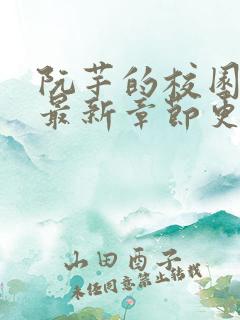 阮芋的校园
最新章节更
山田酉子
未经同意禁止转载